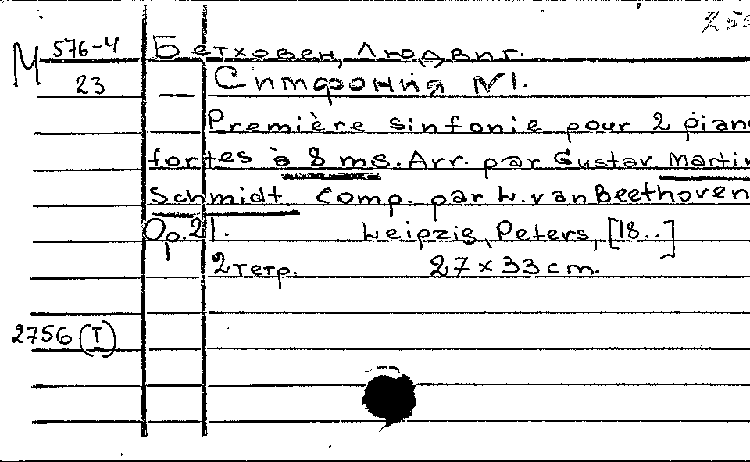 M 576-4 Бетховен, Людвиг.
23 — Симфония №1.
Première sinfonie pour 2 piano
fortes à 8 ms. Arr. par Gustav Martin
Schmidt Comp. par L. van Beethoven
Op. 21. Leipzig, Peters, [18..]
2 тетр. 27 x 33 cm.
2756 (I)